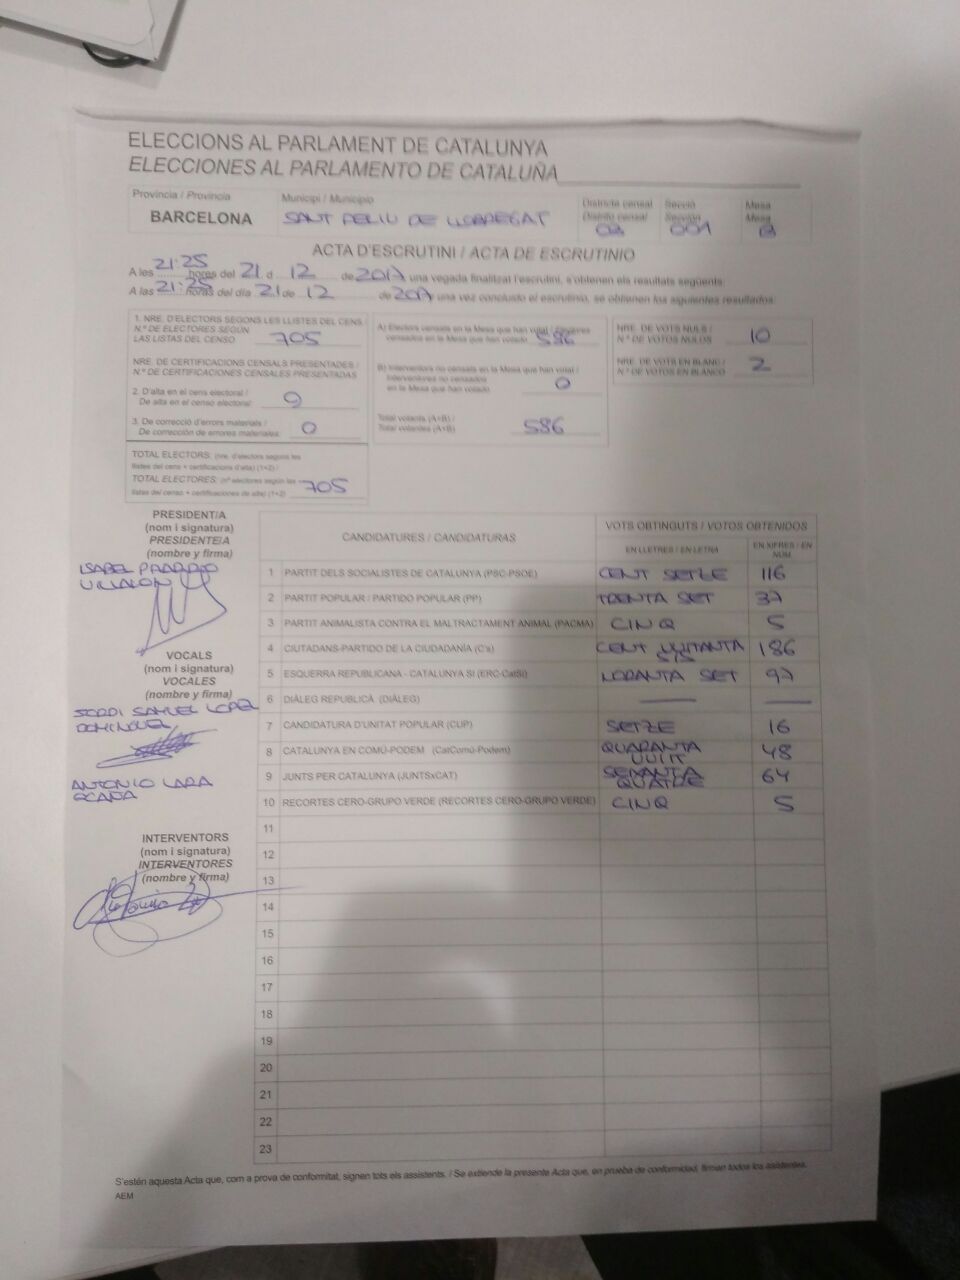 ELECCIONS AL PARLAMENT DE CATALUNYA
ELECCIONES AL PARLAMENTO DE CATALUÑA
Província / Provincia
BARCELONA
Municipi / Municipio
SANT FELIU DE LLOBREGAT
Districte censal
Distrito censal
02
Secció
Sección
001
Mesa
Mesa
B
ACTA D'ESCRUTINI / ACTA DE ESCRUTINIO
A les 21:25 hores del 21 d 12 de 2017 una vegada finalitzat l'escrutini, s'obtenen els resultats següents:
A las 21:25 horas del día 21 de 12 de 2017 una vez concluido el escrutinio, se obtienen los siguientes resultados:
1. NRE. D'ELECTORS SEGONS LES LLISTES DEL CENS
N.º DE ELECTORES SEGÚN
LAS LISTAS DEL CENSO 705
NRE. DE CERTIFICACIONS CENSALS PRESENTADES /
N.º DE CERTIFICACIONES CENSALES PRESENTADAS
2. D'alta en el cens electoral /
De alta en el censo electoral: 0
3. De correcció d'errors materials /
De corrección de errores materiales: 0
TOTAL ELECTORS: (nre. d'electors segons les
llistes del cens + certificacions d'alta) (1+2) /
TOTAL ELECTORES: (nº electores según las
listas del censo + certificaciones de alta) (1+2) 705
A) Electors censats en la Mesa que han votat / Electores
censados en la Mesa que han votado 586
B) Interventors no censats en la Mesa que han votat /
Interventores no censados
en la Mesa que han votado 0
Total votants (A+B) /
Total votantes (A+B) 586
NRE. DE VOTS NULS /
N.º DE VOTOS NULOS 10
NRE. DE VOTS EN BLANC /
N.º DE VOTOS EN BLANCO 2
PRESIDENT/A
(nom i signatura)
PRESIDENTE/A
(nombre y firma)
ISABEL
VOCALS
(nom i signatura)
VOCALES
(nombre y firma)
JORDI SAMUEL LOPEZ
DOMINGUEZ
ANTONIO LARA
OCAÑA
INTERVENTORS
(nom i signatura)
INTERVENTORES
(nombre y firma)
CANDIDATURES / CANDIDATURAS
VOTS OBTINGUTS / VOTOS OBTENIDOS
EN LLETRES / EN LETRA
EN XIFRES / EN NUM.
1 PARTIT DELS SOCIALISTES DE CATALUNYA (PSC-PSOE) CENT SETZE 116
2 PARTIT POPULAR / PARTIDO POPULAR (PP) TRENTA SET 37
3 PARTIT ANIMALISTA CONTRA EL MALTRACTAMENT ANIMAL (PACMA) CINQ 5
4 CIUTADANS-PARTIDO DE LA CIUDADANÍA (C's) CENT VUITANTA SIS 186
5 ESQUERRA REPUBLICANA - CATALUNYA SI (ERC-CatSí) NORANTA SET 97
6 DIÀLEG REPUBLICÀ (DIÀLEG)
7 CANDIDATURA D'UNITAT POPULAR (CUP) SETZE 16
8 CATALUNYA EN COMÚ-PODEM (CatComú-Podem) QUARANTA VUIT 48
9 JUNTS PER CATALUNYA (JUNTSxCAT) SEIXANTA QUATRE 64
10 RECORTES CERO-GRUPO VERDE (RECORTES CERO-GRUPO VERDE) CINQ 5
11
12
13
14
15
16
17
18
19
20
21
22
23
S'estén aquesta Acta que, com a prova de conformitat, signen tots els assistents. / Se extiende la presente Acta que, en prueba de conformidad, firman todos los asistentes.
AEM